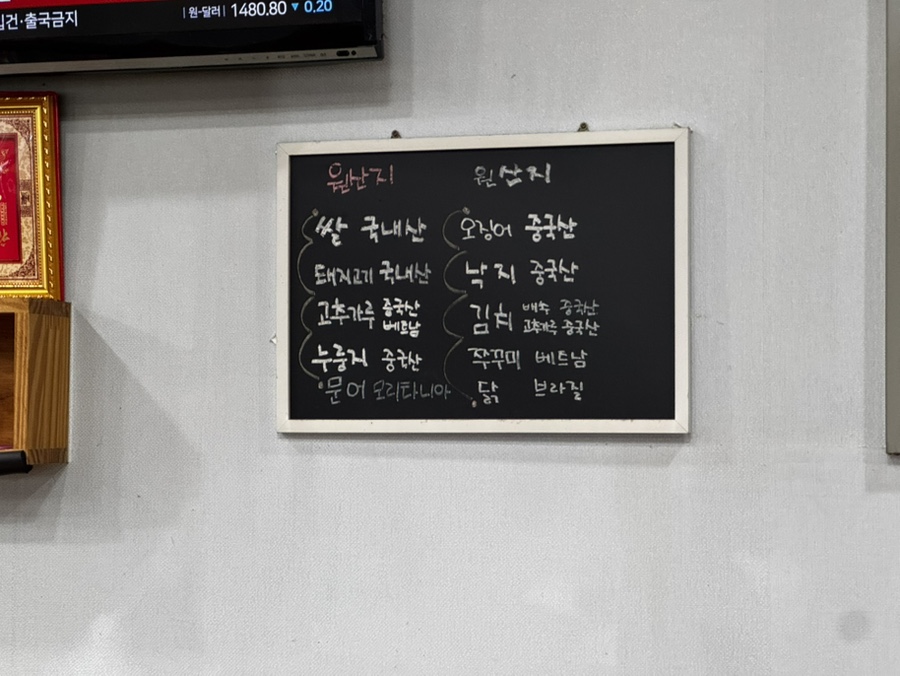 입건·출국금지
원-달러 1480.80 ▼ 0.20
원산지
쌀 국내산
돼지고기 국내산
고추가루 중국산
베트남
누룽지 중국산
문어 모리타니아
원산지
오징어 중국산
낙지 중국산
김치 배추 중국산
고추가루 중국산
쭈꾸미 베트남
닭 브라질